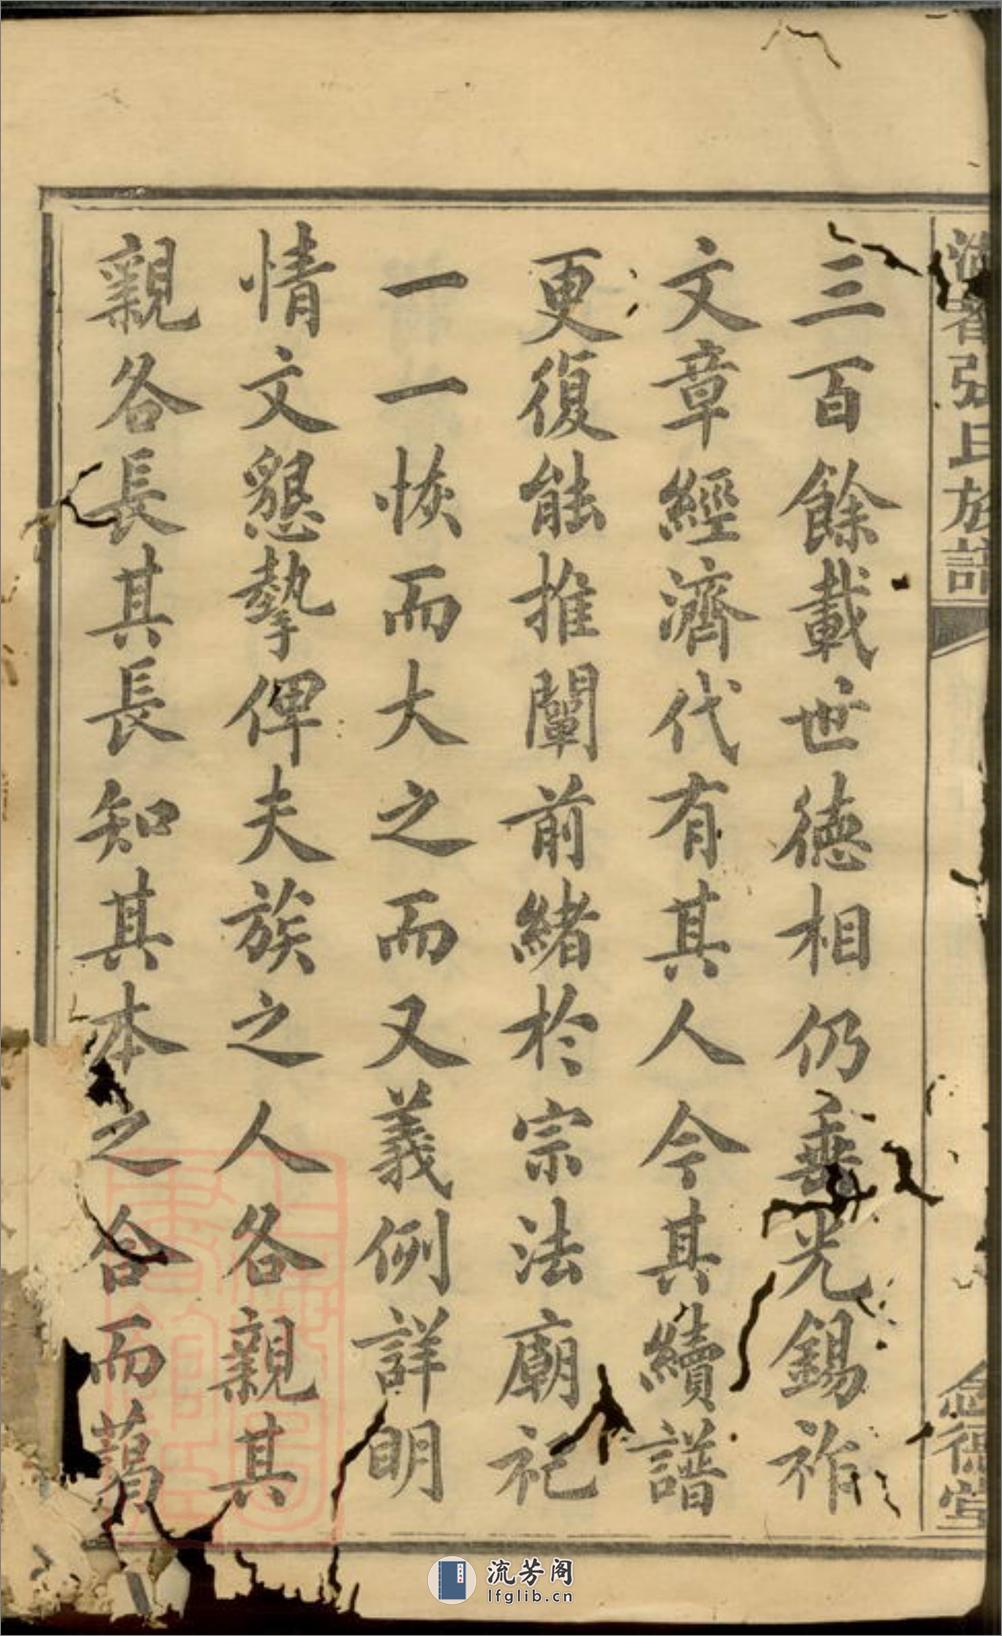 張氏族譜
念德堂
三百餘載世德相仍垂光錫祚
文章經濟代有其人今其續譜
更復能推闡前緒於宗法廟祀
一一恢而大之而又義例詳明
情文懇摯俾夫族之人各親其
親各長其長知其本之合而藹
流芳阁
lfglib.cn